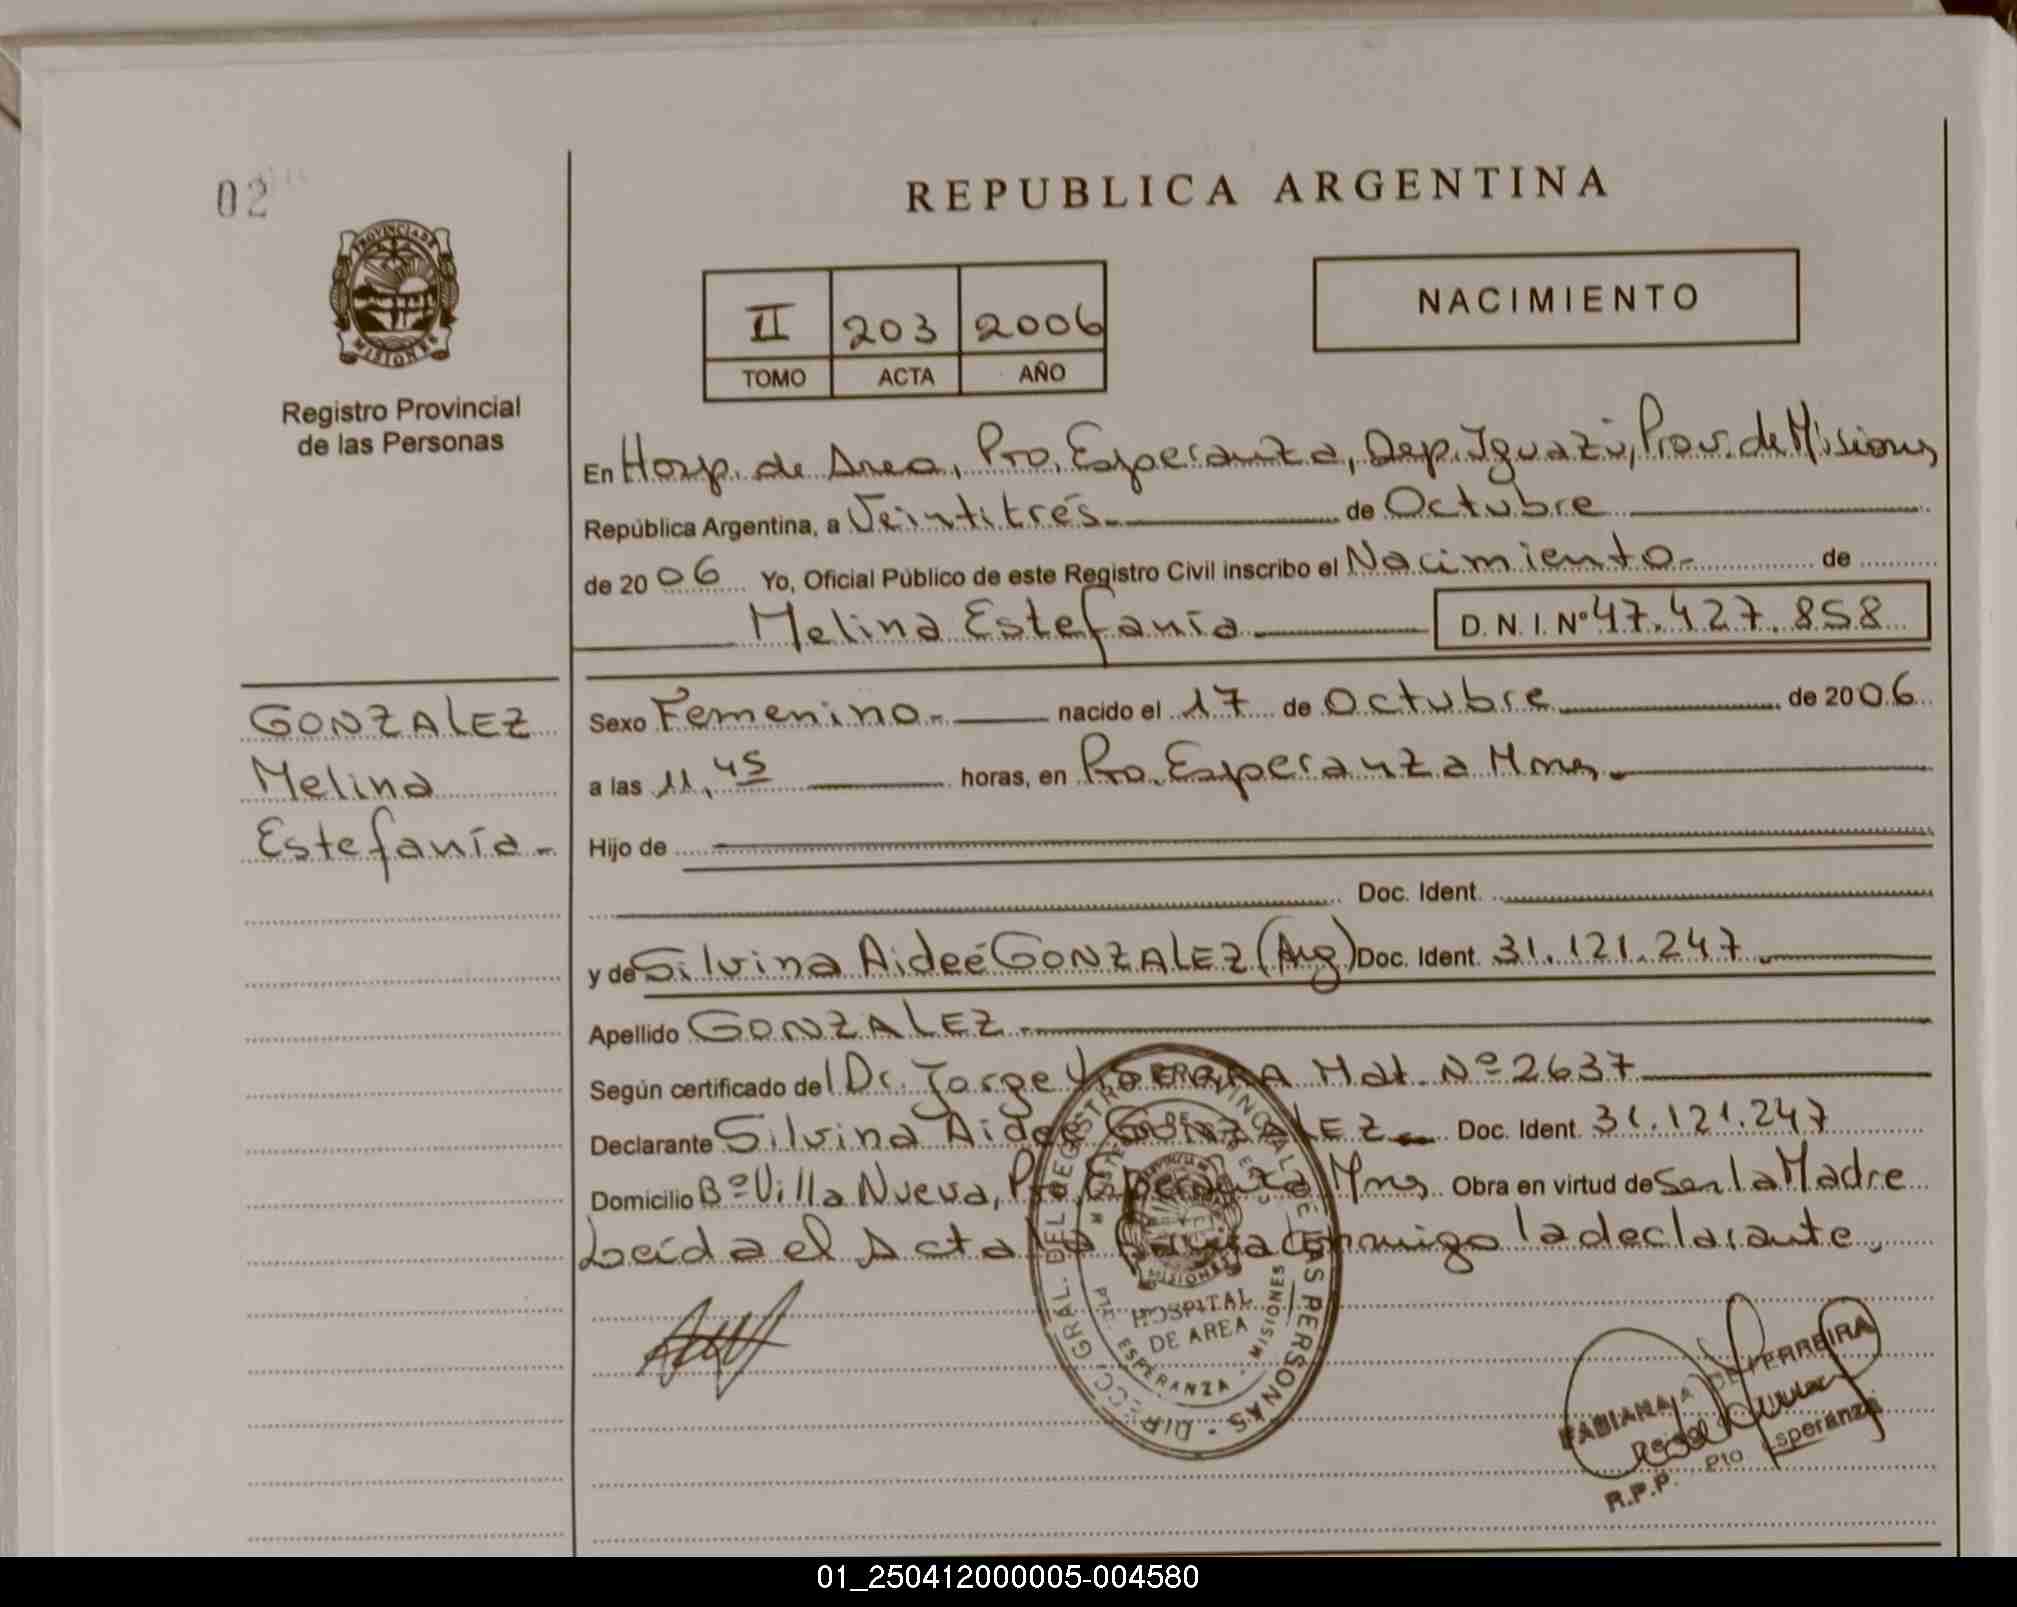 02
REPUBLICA ARGENTINA
PROVINCIA DE
MISIONES
Registro Provincial
de las Personas
II 203 2006
TOMO ACTA AÑO
NACIMIENTO
En Hosp. de Area, Pto. Esperanza, Dep. Iguazú, Prov. de Misiones
República Argentina, a Veintitrés.- de Octubre
de 2006 Yo, Oficial Público de este Registro Civil inscribo el Nacimiento.- de
Melina Estefanía D. N. I. Nº 47.427.858
GONZALEZ
Melina
Estefanía.-
Sexo Femenino.- nacido el 17 de Octubre de 2006
a las 11,45 horas, en Pto. Esperanza Mnes.-
Hijo de
Doc. Ident.
y de Silvina Aideé GONZALEZ (Arg) Doc. Ident. 31.121.247.
Apellido GONZALEZ.-
Según certificado del Dr. Jorge Mat. Nº 2637
Declarante Silvina Aideé GONZALEZ Doc. Ident. 31.121.247
Domicilio Bº Villa Nueva, Pto. Esperanza Mnes. Obra en virtud de Ser la Madre
Leída el Acta la firma conmigo la declarante.
DIRECC. GRAL. DEL REGISTRO PROVINCIAL DE LAS PERSONAS
MISIONES
HOSPITAL
DE AREA
ESPERANZA - MISIONES
FABIANA A DE FERREIRA
R.P.P. Pto Esperanza
01_250412000005-004580